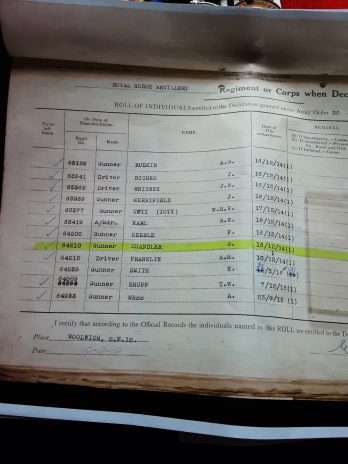 ROYAL HORSE ARTILLERY Regiment or Corps when Dec
ROLL OF INDIVIDUALS entitled to the Decoration granted under Army Order 20
To be left blank. On Date of Disembarkation. Regtl. No. Rank. NAME Date of Disembarkation. REMARKS
63156 Gunner A.G. 16/12/14(1)
63241 Driver HUGHES J. 16/12/14(1)
63262 Driver WHITNEY J.K. 16/12/14(1)
63269 Gunner MERRIFIELD J. 16/12/14(1)
63277 Gunner W.H.V. 17/12/14(1)
63419 A/Bdr. EARL 16/12/14(1)
64200 Gunner KEEBLE F. 16/12/14(1)
64210 Gunner CHANDLER G. 16/12/14(1)
64215 Driver FRANKLIN A.H. 16/12/14(1)
64238 Gunner SMITH E. /3/15
Gunner SHUPP T.W. 7/12/15(1)
64933 Gunner WEBB A. 23/9/15 (1)
I certify that according to the Official Records the individuals named in this ROLL are entitled to the De
Place WOOLWICH, S.E.18.
Date